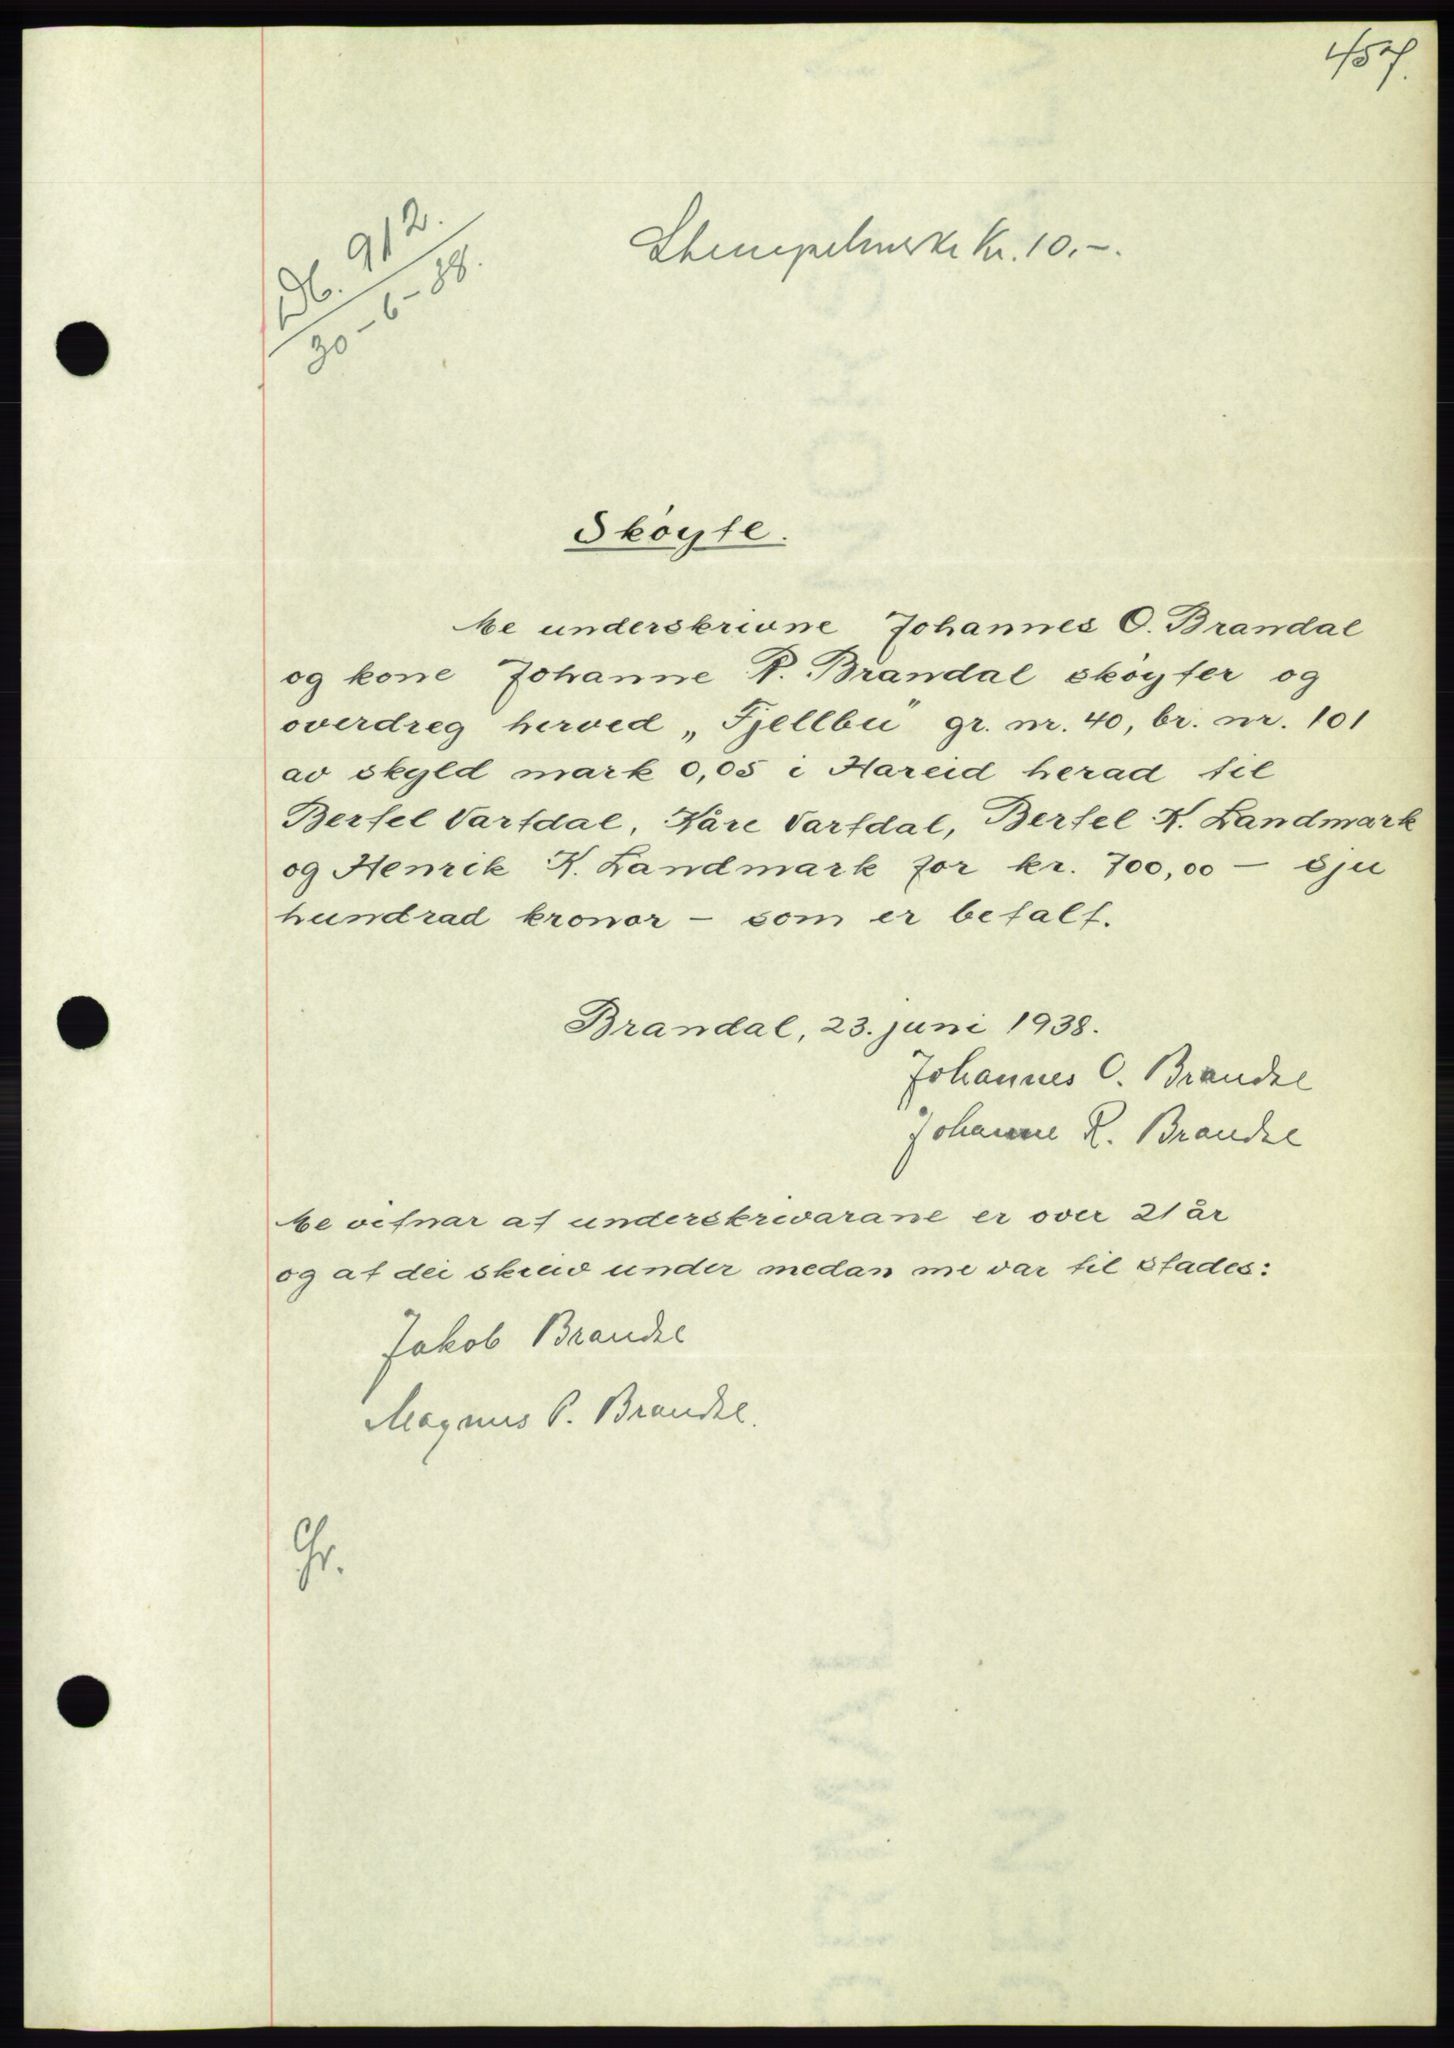 457.
Db. 912.
30-6-38.
Stempelmerke Kr. 10.-.
Skøyte.
Me underskrivne Johannes O. Brandal
og kone Johanne R. Brandal skøyter og
overdreg herved „Fjellbu" gr. nr. 40, br. nr. 101
av skyld mark 0,05 i Hareid herad til
Bertel Vartdal, Kåre Vartdal, Bertel K. Landmark
og Henrik K. Landmark for kr. 700,00 - sju
hundrad kronor - som er betalt.
Brandal, 23. juni 1938.
Johannes O. Brandal
Johanne R. Brandal
Me vitnar at underskrivarane er over 21 år
og at dei skreiv under medan me var til stades:
Jakob Brandal
Magnus P. Brandal.